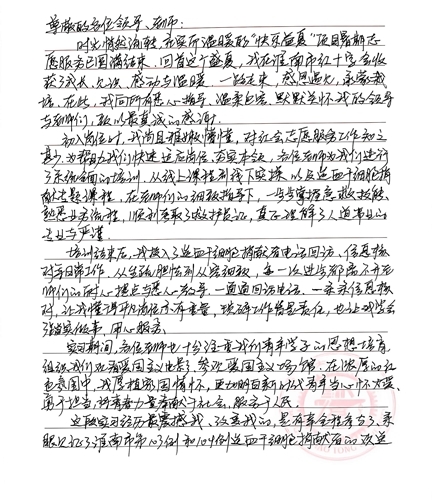 尊敬的各位领导、老师：
时光悄然流转，充实而温暖的“快乐益夏”项目暑期志
愿服务已圆满结束。回首这个盛夏，我在淮南市红十字会收
获了成长、欢欣、感动与温暖。一路走来，感恩遇见，承蒙栽
培。在此，我向所有悉心指导、温柔包容、默默关怀我的领导
与老师们，致以最真诚的感谢！
初入岗位时，我尚且稚嫩懵懂，对红会志愿服务工作知之
甚少。为帮助我们快速适应岗位、夯实本领，各位老师为我们进行
了系统全面的培训，从线上课程到线下实操，以及造血干细胞捐
献专题课程，在老师们的细致指导下，一步步掌握急救技能、
熟悉业务流程，顺利考取了救护员证，真正理解了人道事业的
专业与严谨。
培训结束后，我投入了造血干细胞捐献者电话回访、信息核
对等日常工作，从生疏胆怯到从容细致，每一次进步都离不开老
师们的耐心指点与悉心教导。一通通回访电话、一条条信息核
对，让我懂得平凡岗位亦有重量，琐碎工作皆是责任，也让我学会
踏实做事、用心服务。
实习期间，各位老师也十分注重我们青年学子的思想培育，
组织我们观看爱国主义电影、参观爱国主义场馆。在浓厚的红
色氛围中，我厚植家国情怀，更加明白新时代青年当心怀大爱、
勇于担当，将青春力量奉献于社会、服务于人民。
这段实习经历最震撼我、改变我的，是有幸全程参与了、亲
眼见证了淮南市第103例和104例造血干细胞捐献者的欢送